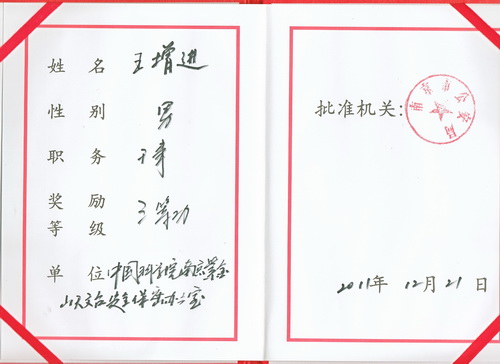 姓 名 王增进
性 别 男
职 务 干事
奖励等级 三等功
单 位 中国科学院南京紫金
山天文台安全保密办公室
批准机关:
南京市公安局
2011年 12月 21日